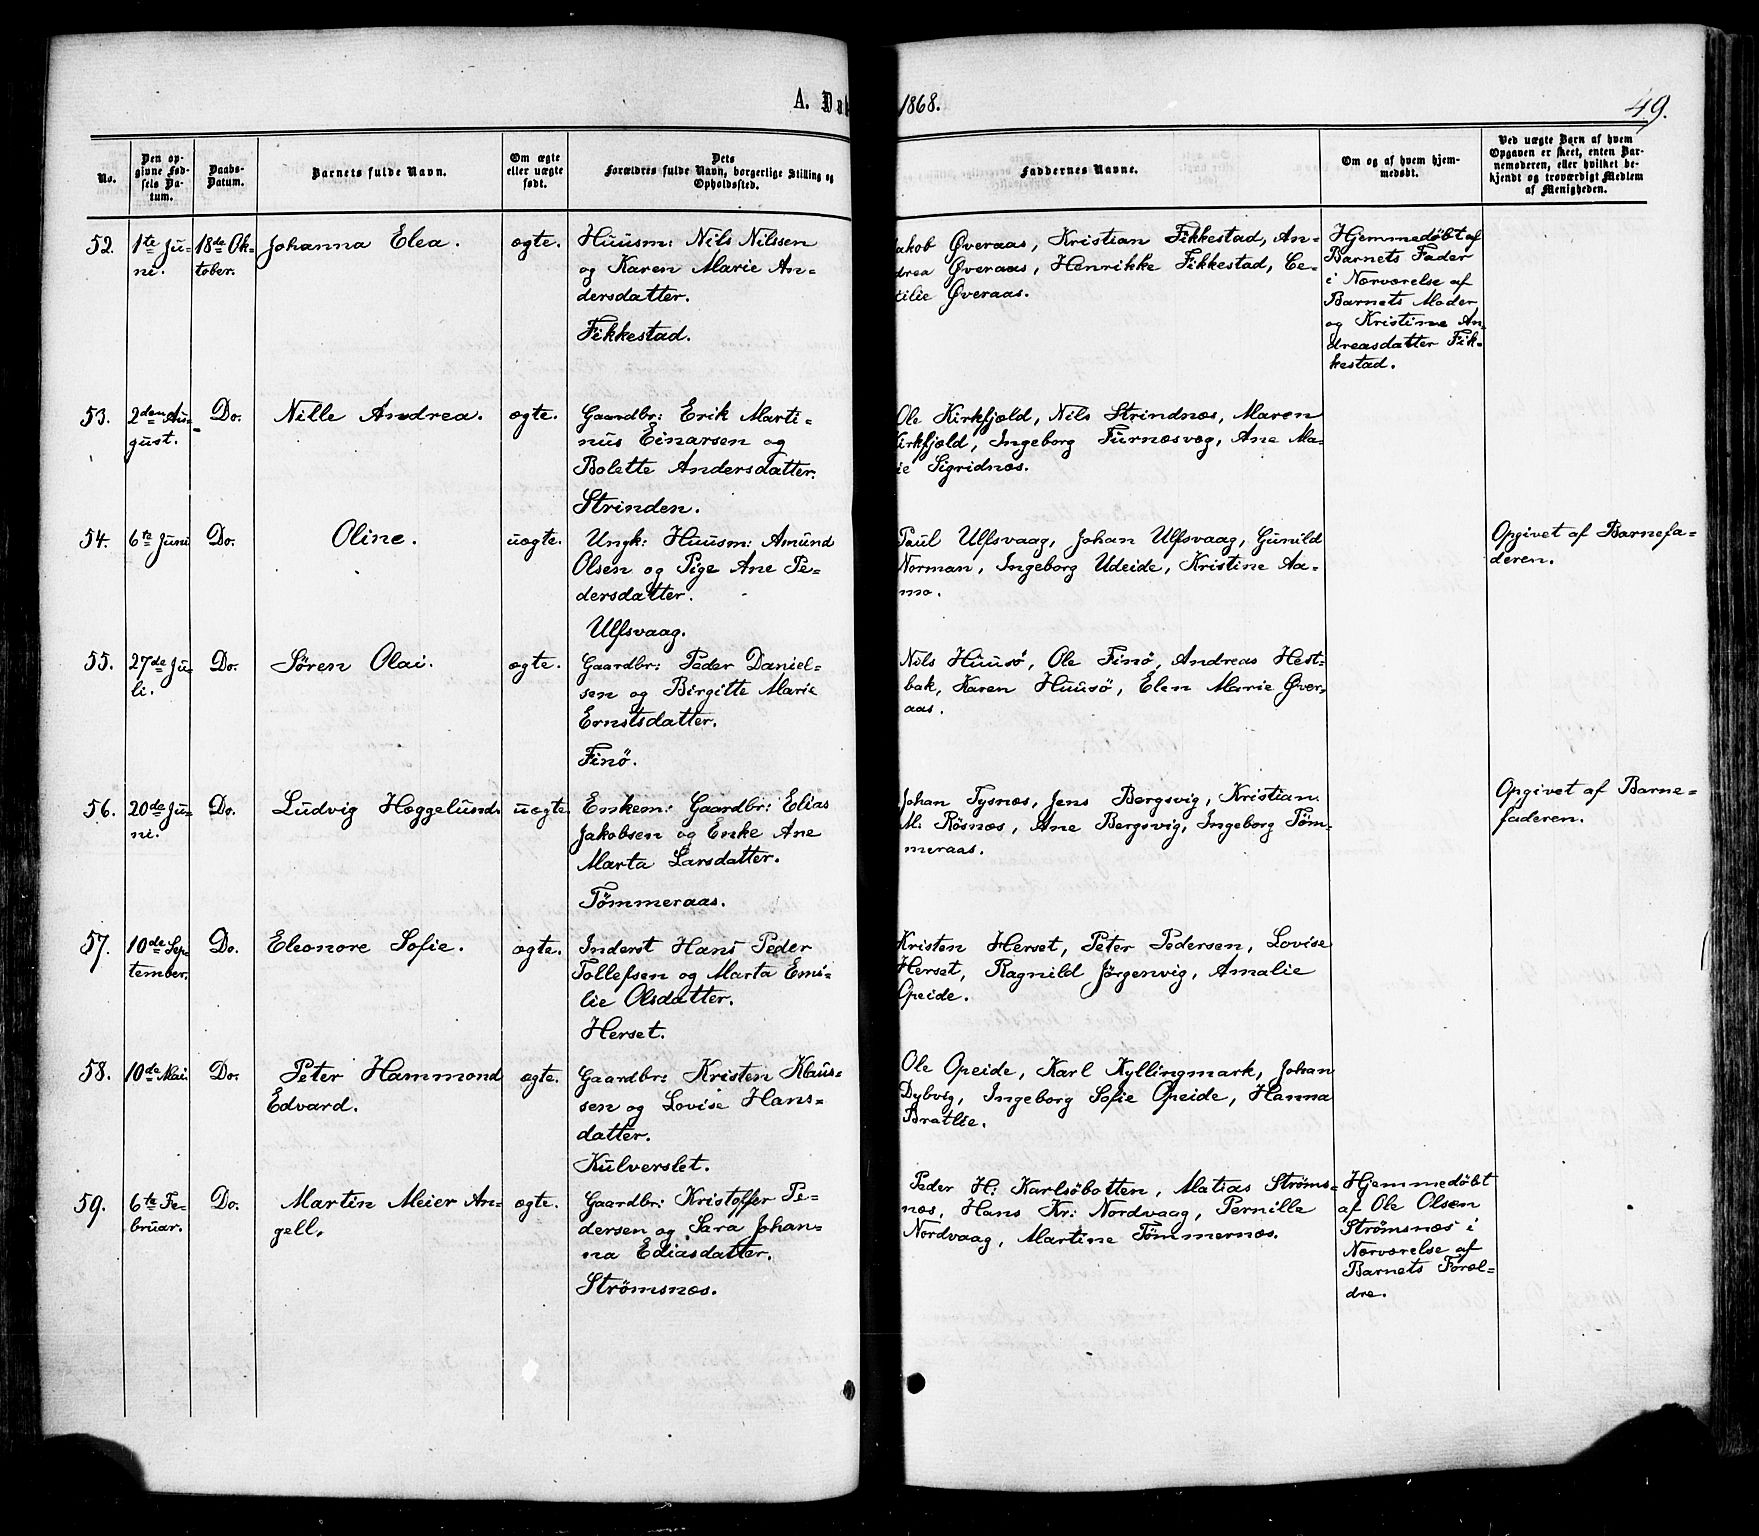 A. Dab 1868. 49.
No.
Den op-
givne Fød-
sels Da-
tum.
Daabs-
Datum.
Barnets fulde Navn.
Om ægte
eller uægte
født.
Dets
Forældres fulde Navn, borgerlige Stilling og
Opholdssted.
Faddernes Navne.
Om og af hvem hjem-
medøbt.
Ved uægte Barn af hvem
Opgaven er skeet, enten Bar-
nemoderen, eller hvilket be-
kjendt og troværdigt Medlem
af Menigheden.
52.
1te Ju-
ni.
18de Ok-
tober.
Johanna Elea.
ægte.
Huusm: Nils Nilssen
og Karen Marie An-
dersdatter.
Fikkestad.
akob Øveraas, Kristian Fikkestad, An-
drea Øveraas, Henrikke Fikkestad, Ce-
cilie Øveraas.
Hjemmedøbt af
Barnets Fader
i Nærværelse af
Barnets Moder
og Kristine An-
dreasdatter Fik-
kestad.
53.
2den Au-
gust.
Do.
Nille Andrea.
ægte.
Gaardbr: Erik Marti-
nus Einarsen og
Bolette Andersdatter.
Strinden.
Ole Kirkfjæld, Nils Strindnæs, Maren
Kirkfjæld, Ingeborg Furnæsvæg, Ane Ma-
ie Sigridnæs.
54.
6te Juni
Do.
Oline.
uægte.
Ungk: Huusm: Amund
Olsen og Pige Ane Pe-
dersdatter.
Ulfsvaag.
Paul Ulfsvaag, Johan Ulfsvaag, Gunild
Norman, Ingeborg Udeide, Kristine Aa-
mo.
Opgivet af Barnefa-
deren.
55.
27de Ju-
li.
Do.
Søren Olai.
ægte.
Gaardbr: Peder Daniel-
sen og Birgitte Marie
Ernstsdatter.
Finø.
Nils Huusø, Ole Finø, Andreas Hest-
bak, Karen Huusø, Elen Marie Øver-
aas.
56.
20de Ju-
ni.
Do.
Ludvig Hæggelund.
uægte.
Enkem: Gaardbr: Elias
Jakobsen og Enke Ane
Marta Larsdatter.
Tömmeraas.
Johan Tysnæs, Jens Bergsvig, Kristian
M: Røsnæs, Ane Bergsvig, Ingeborg Töm-
meraas.
Opgivet af Barne-
faderen.
57.
10de Sep-
tember.
Do.
Eleonore Sofie.
ægte.
Inderst Hans Peder
Tollefsen og Marta Emi-
lie Olsdatter.
Herset.
Kristen Herset, Peter Pedersen, Lovise
Herset, Ragnild Jørgenvig, Amalie
Opeide.
58.
10de Mai.
Do.
Peter Hammond
Edvard.
ægte.
Gaardbr: Kristen Klaus-
sen og Lovise Hans-
datter.
Kulverslet.
Ole Opeide, Karl Kyllingmark, Johan
Dybvig, Ingeborg Sofie Opeide, Hanna
Bratlie.
59.
6te Fe-
bruar.
Do.
Martin Meier An-
gell.
ægte.
Gaardbr: Kristoffer Pe-
dersen og Sara Johan-
na Ediasdatter.
Strömsnæs.
Peder H: Karlsöbotten, Matias Ströms-
næs, Hans Kr: Nordvaag, Pernille
Nordvaag, Martine Tömmernæs.
Hjemmedøbt
af Ole Olsen
Strömsnæs i
Nærværelse af
Barnets Foræl-
dre.